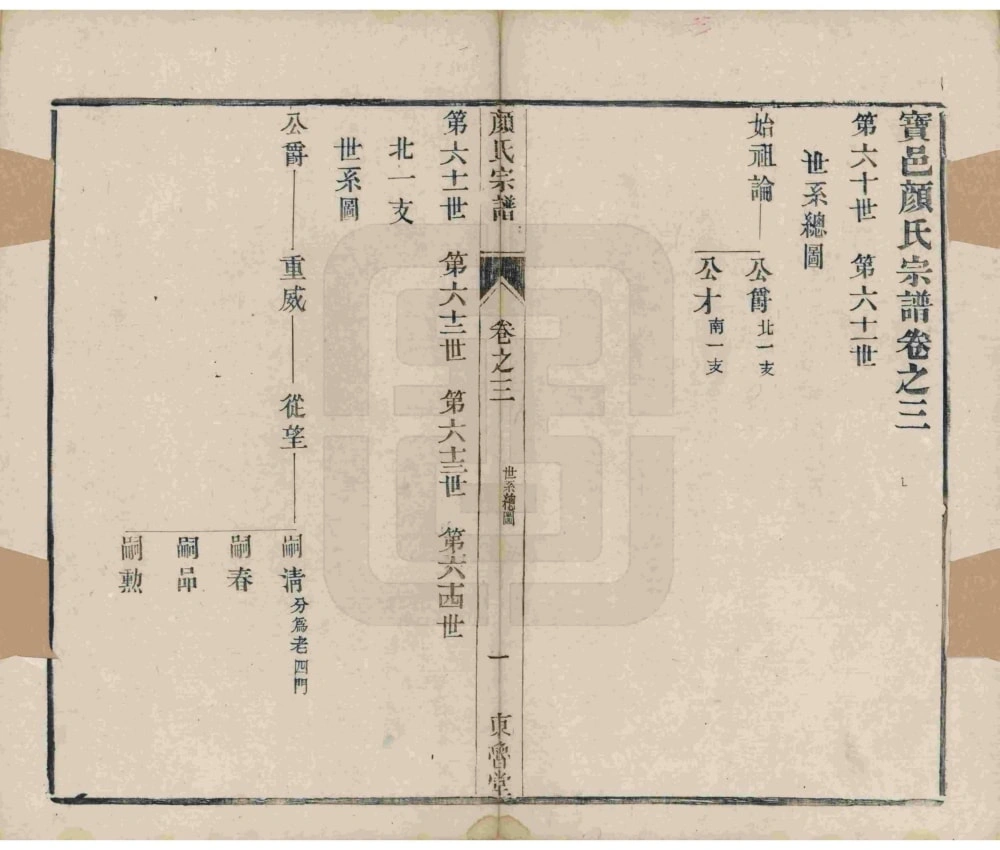 寶邑顔氏宗譜卷之三
第六十世　第六十一世
世系總圖
始祖論
公爵北一支
公才南一支
顔氏宗譜　卷之三　世系總圖　一　東魯堂
第六十一世　第六十二世　第六十三世　第六十四世
北一支
世系圖
公爵　重威　從望　嗣清分爲老四門
嗣春
嗣品
嗣勲